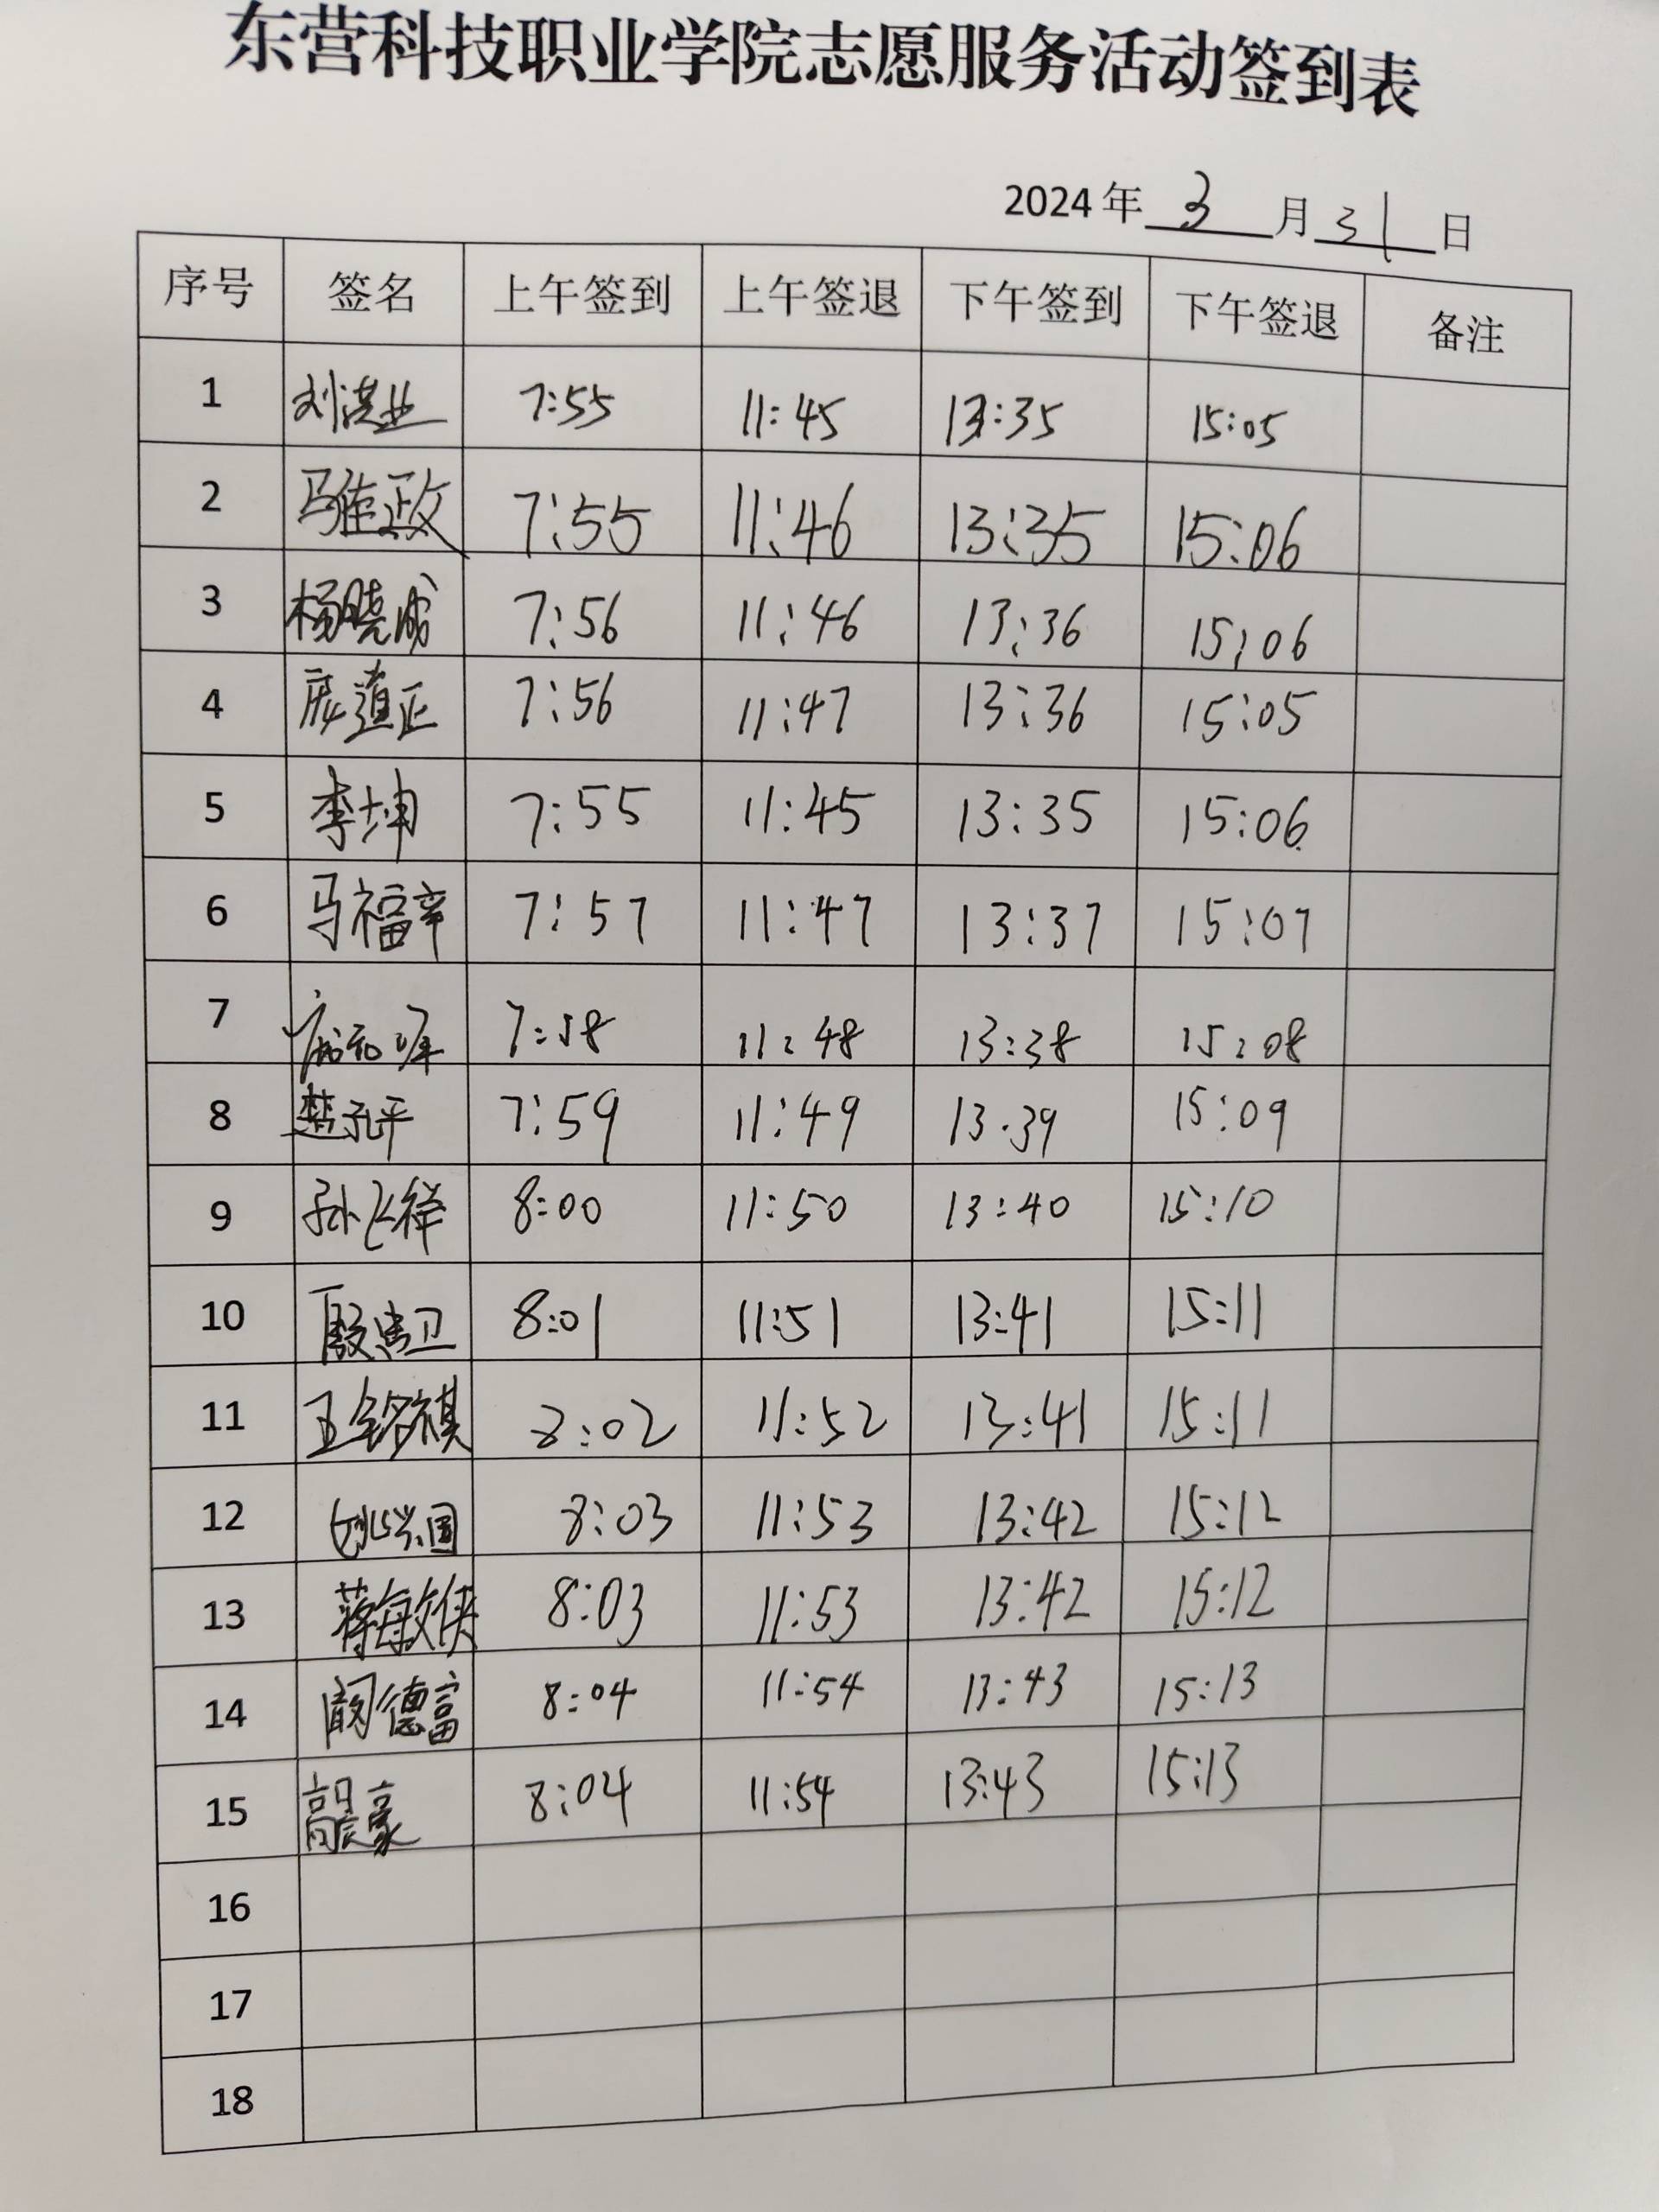 东营科技职业学院志愿服务活动签到表
2024年 3 月 31 日
序号 签名 上午签到 上午签退 下午签到 下午签退 备注
1 刘洪业 7:55 11:45 13:35 15:05
2 马佳政 7:55 11:46 13:35 15:06
3 杨晓成 7:56 11:46 13:36 15:06
4 庞道正 7:56 11:47 13:36 15:05
5 李坤 7:55 11:45 13:35 15:06
6 马福辛 7:57 11:47 13:37 15:07
7 7:58 11:48 13:38 15:08
8 楚孔平 7:59 11:49 13:39 15:09
9 孙飞祥 8:00 11:50 13:40 15:10
10 8:01 11:51 13:41 15:11
11 王铭祺 8:02 11:52 13:41 15:11
12 8:03 11:53 13:42 15:12
13 蒋敏侠 8:03 11:53 13:42 15:12
14 阚德富 8:04 11:54 13:43 15:13
15 高晨豪 8:04 11:54 13:43 15:13
16
17
18